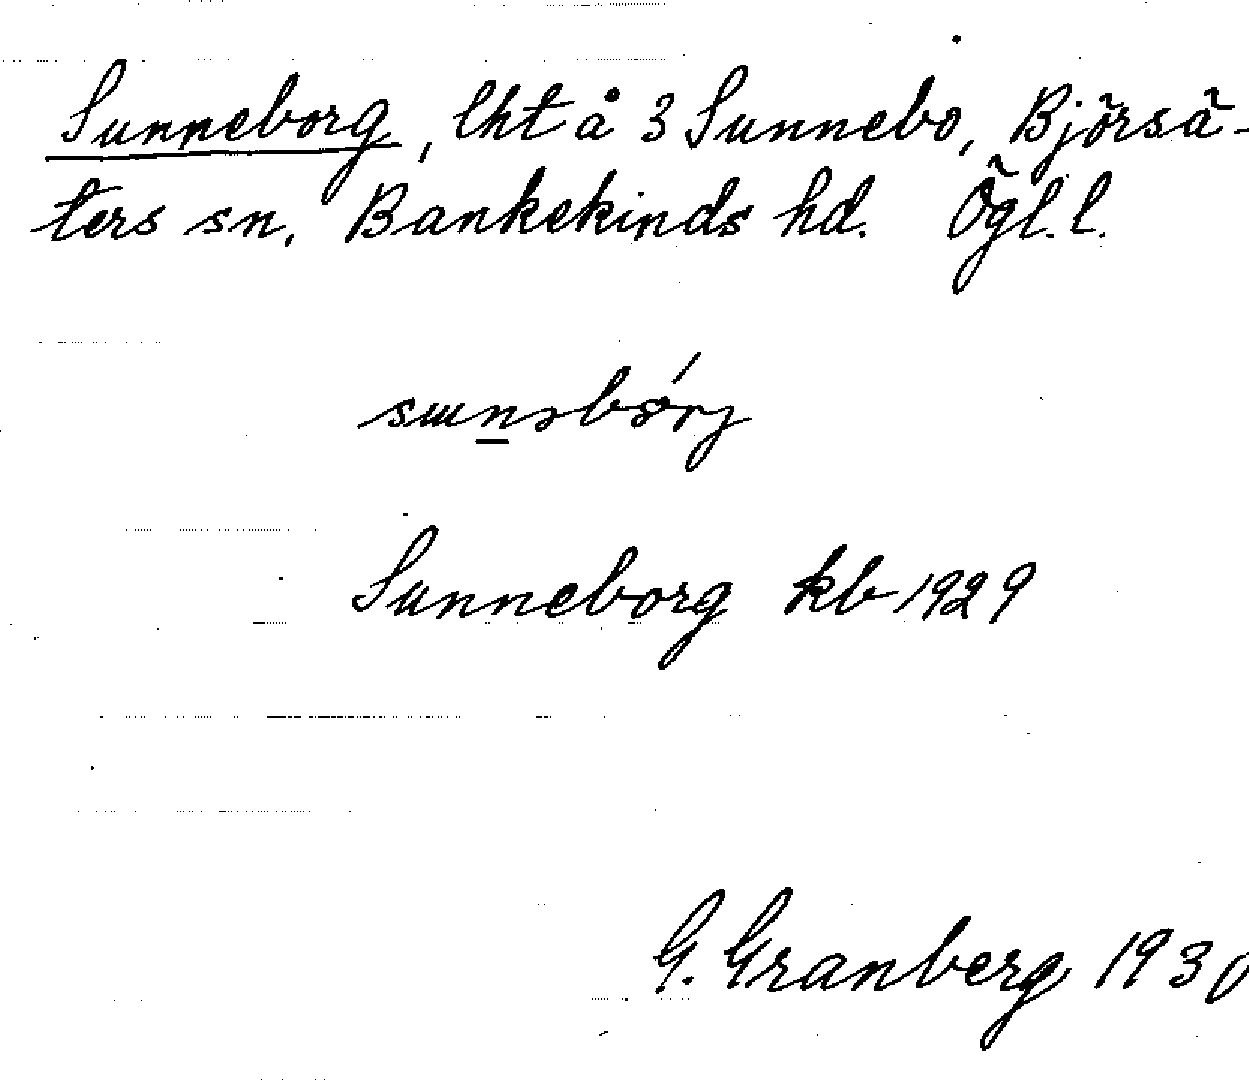 Sunneborg, lht å 3 Sunnebo, Björsä-
ters sn, Bankekinds hd. Ögl. l.
Sunneborg kb 1929
G. Granberg 1930